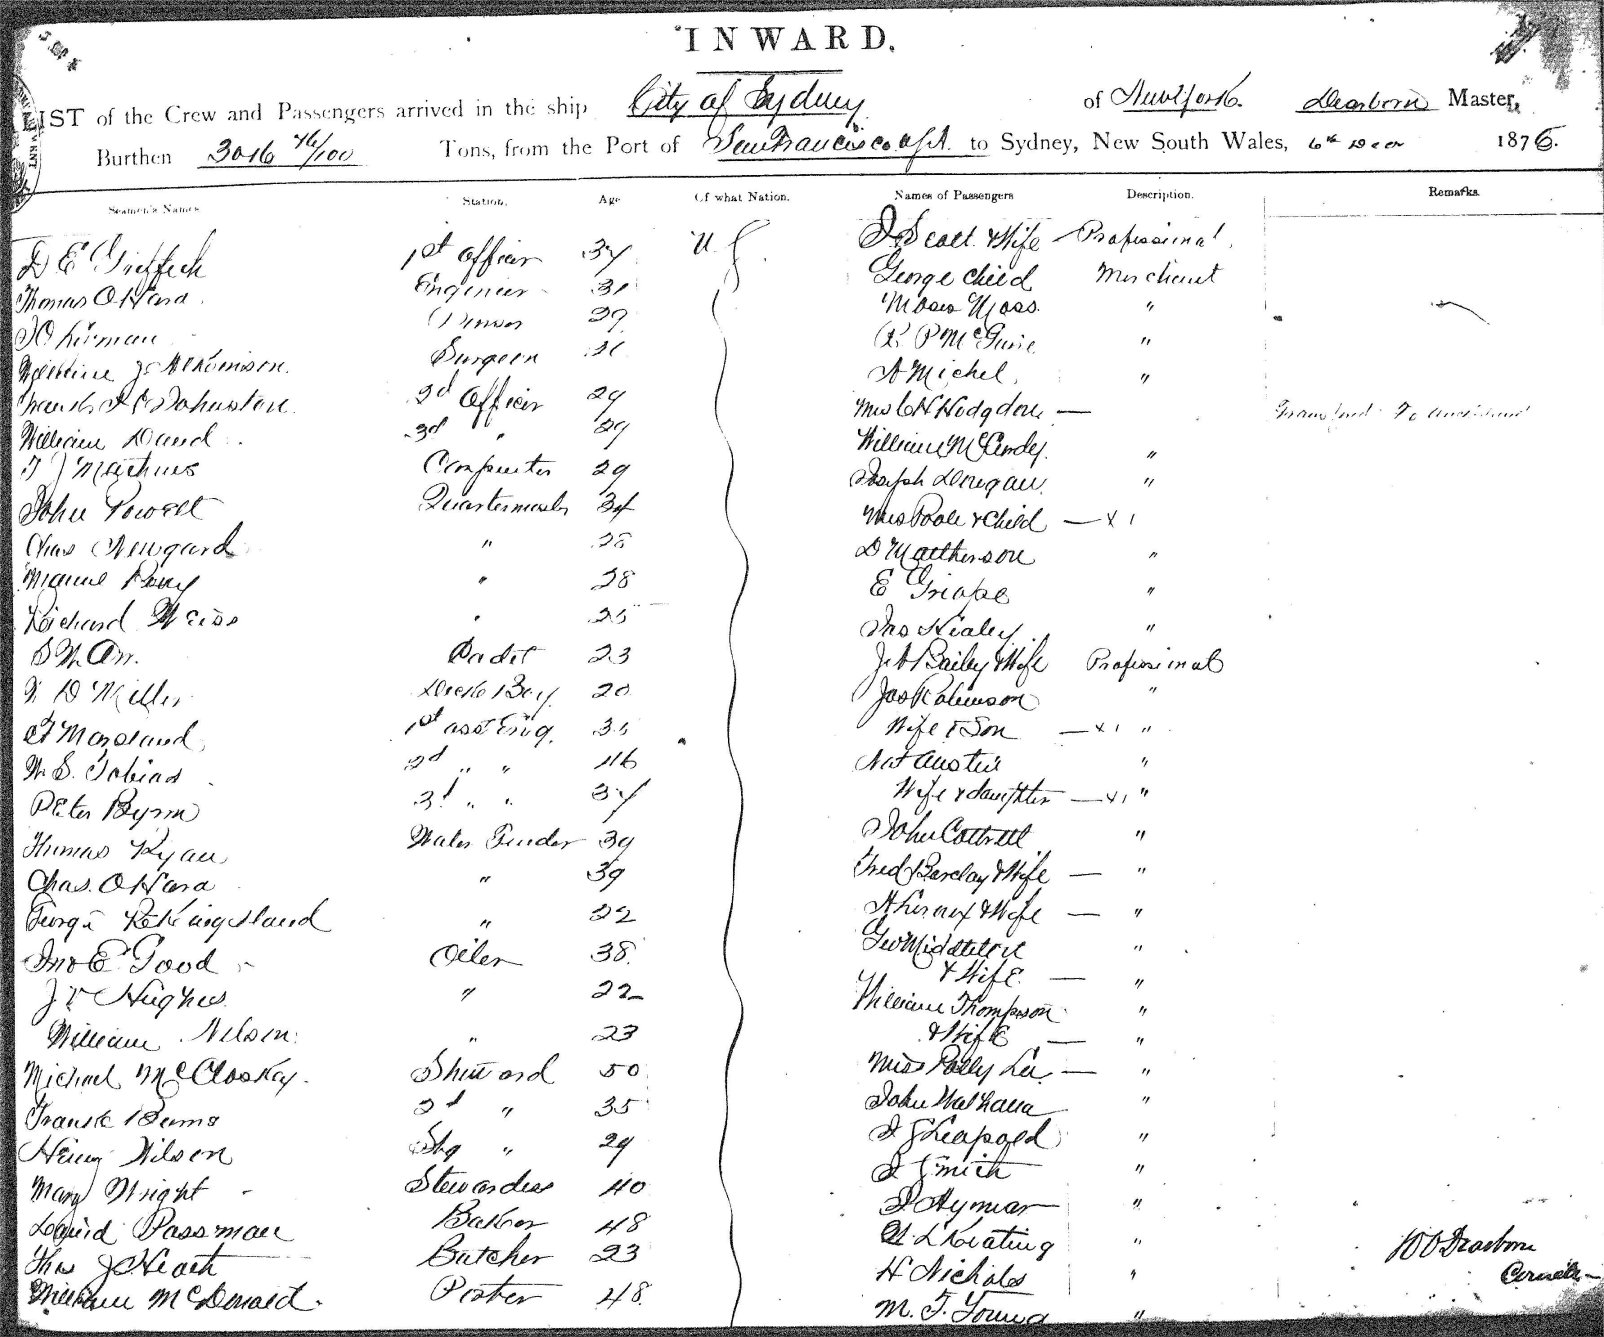 INWARD.
LIST of the Crew and Passengers arrived in the ship City of Sydney of New York. Dearborn Master,
Burthen 3016 76/100 Tons, from the Port of San Francisco to Sydney, New South Wales, 6th Decr 1876.
Seamen's Names Station. Age Of what Nation. Names of Passengers Description. Remarks.
D E Griffith 1st Officer 34 U S J Scott & Wife — Professional
Thomas O Hara Engineer George Child Merchant
Purser Moses Moss "
William Surgeon R. P McGuire "
Johnston 2d Officer 29 A Michel "
William David 3d " 29 Mrs C H Hodgdon —
T J Mathews Carpenter 29 William McCurdy "
John Powell Quartermaster 34 Joseph "
Chas 28 Mrs Poole & Child — x 1
" 28 D Mattherson "
Richard Weiss " 25 E "
S W Orr. Cadet 23 Jno Healey "
W D Miller Deck Boy 20 J A Bailey & Wife Professional
Moreland 1st asst Eng. Jas Robinson "
W. S. Tobias 2d " " 46 Wife & Son — x 1 "
Peter Byrne 3d " " 34 Nat Austin "
Thomas Ryan Water Tender 39 Wife & daughter — x 1 "
Chas. O Hara " 39 John Cottrell "
George Kingsland " 22 Fred Barclay & Wife — "
Jno E. Good Oiler 38 A Lennox & Wife — "
J Hughes " 22 Geo Middleton "
William Nelson " 23 & Wife — "
Michael McCloskey Steward 50 William Thompson "
Frank Burns 2d " 35 & Wife — "
Henry Wilson Stg " 29 Miss Polly Lee — "
Mary Wright Stewardess 40 John "
David Passman Baker 48 J G Leapold "
Thos J Heath Butcher 23 J Smith "
William McDonald Porter 48 J Hymar "
L Keating "
H Nichols "
M. F. Young "
Dearborn